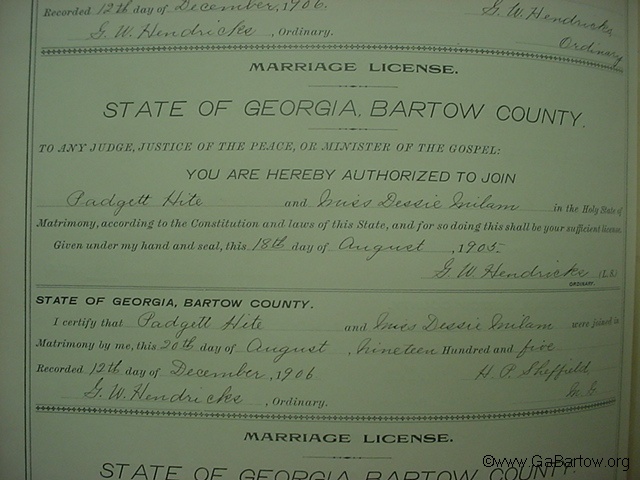 Recorded 12th day of December, 1906. G. W. Hendricks
G. W. Hendricks, Ordinary. Ordinary
MARRIAGE LICENSE.
STATE OF GEORGIA, BARTOW COUNTY.
TO ANY JUDGE, JUSTICE OF THE PEACE, OR MINISTER OF THE GOSPEL:
YOU ARE HEREBY AUTHORIZED TO JOIN
Padgett Hite and Miss Dessie Milam in the Holy State of
Matrimony, according to the Constitution and laws of this State, and for so doing this shall be your sufficient license.
Given under my hand and seal, this 18th day of August, 1905.
G. W. Hendricks (L.S.)
ORDINARY.
STATE OF GEORGIA, BARTOW COUNTY.
I certify that Padgett Hite and Miss Dessie Milam were joined in
Matrimony by me, this 20th day of August, Nineteen Hundred and five
Recorded 12th day of December, 1906 H. P. Sheffield
G. W. Hendricks, Ordinary. M. G.
MARRIAGE LICENSE.
STATE OF GEORGIA, BARTOW COUNTY.
©www.GaBartow.org